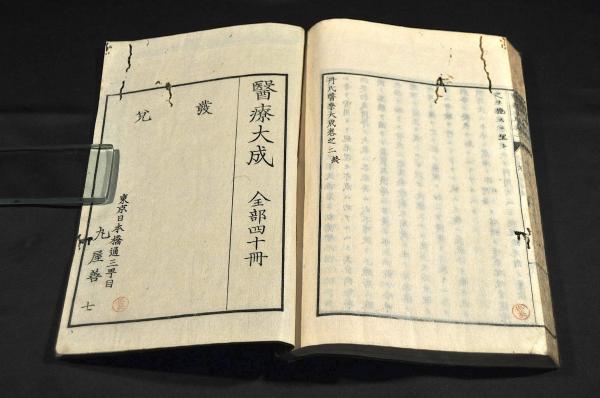 丹氏醫療大成卷之二終
醫療大成 全部四十冊
發兌
東京日本橋通三丁目
丸屋善七